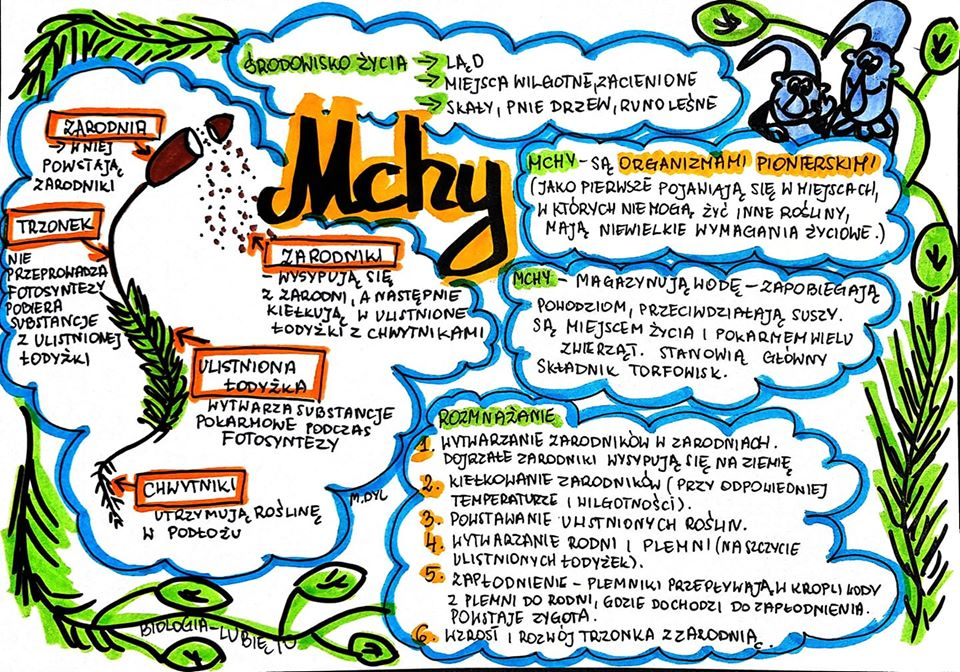 ŚRODOWISKO ŻYCIA → LĄD
→ MIEJSCA WILGOTNE, ZACIENIONE
→ SKAŁY, PNIE DRZEW, RUNO LEŚNE
Mchy
ZARODNIA
→ W NIEJ
POWSTAJĄ
ZARODNIKI
TRZONEK
NIE
PRZEPROWADZA
FOTOSYNTEZY
POBIERA
SUBSTANCJE
Z ULISTNIONEJ
ŁODYŻKI
ZARODNIKI
– WYSYPUJĄ SIĘ
Z ZARODNI, A NASTĘPNIE
KIEŁKUJĄ W ULISTNIONE
ŁODYŻKI Z CHWYTNIKAMI
ULISTNIONA
ŁODYŻKA
WYTWARZA SUBSTANCJE
POKARMOWE PODCZAS
FOTOSYNTEZY
CHWYTNIKI
UTRZYMUJĄ ROŚLINĘ
W PODŁOŻU
M.DYL
MCHY – SĄ ORGANIZMAMI PIONIERSKIMI
(JAKO PIERWSZE POJAWIAJĄ SIĘ W MIEJSCACH,
W KTÓRYCH NIE MOGĄ ŻYĆ INNE ROŚLINY,
MAJĄ NIEWIELKIE WYMAGANIA ŻYCIOWE.)
MCHY – MAGAZYNUJĄ WODĘ – ZAPOBIEGAJĄ
POWODZIOM, PRZECIWDZIAŁAJĄ SUSZY.
SĄ MIEJSCEM ŻYCIA I POKARMEM WIELU
ZWIERZĄT. STANOWIĄ GŁÓWNY
SKŁADNIK TORFOWISK.
ROZMNAŻANIE
1. WYTWARZANIE ZARODNIKÓW W ZARODNIACH.
DOJRZAŁE ZARODNIKI WYSYPUJĄ SIĘ NA ZIEMIĘ
2. KIEŁKOWANIE ZARODNIKÓW (PRZY ODPOWIEDNIEJ
TEMPERATURZE I WILGOTNOŚCI).
3. POWSTAWANIE ULISTNIONYCH ROŚLIN.
4. WYTWARZANIE RODNI I PLEMNI (NA SZCZYCIE
ULISTNIONYCH ŁODYŻEK).
5. ZAPŁODNIENIE – PLEMNIKI PRZEPŁYWAJĄ W KROPLI WODY
Z PLEMNI DO RODNI, GDZIE DOCHODZI DO ZAPŁODNIENIA.
POWSTAJE ZYGOTA.
6. WZROST I ROZWÓJ TRZONKA Z ZARODNIĄ.
BIOLOGIA – LUBIĘ TO